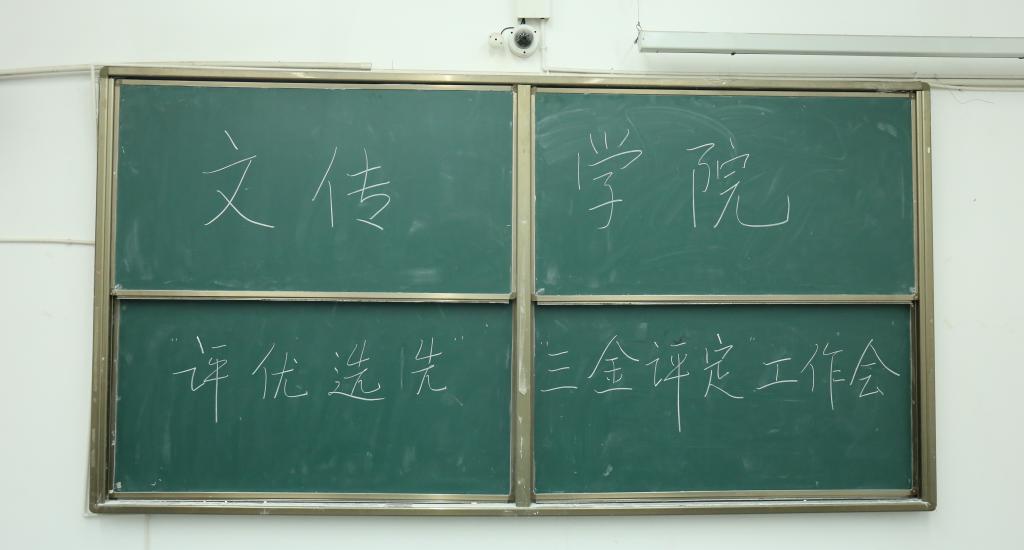 文传学院
"评优选先""三金评定"工作会